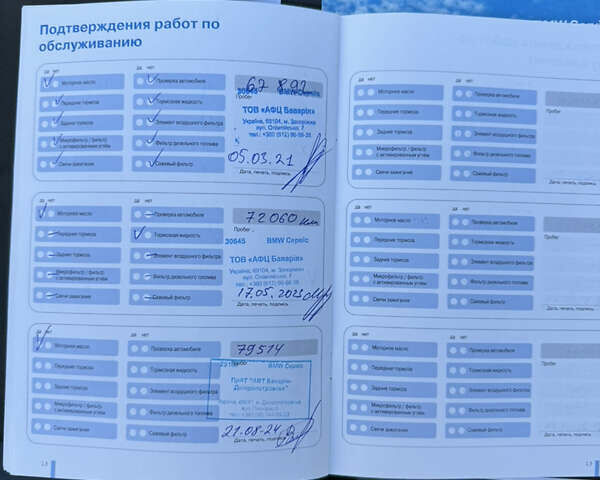 Подтверждения работ по
обслуживанию
да нет
да нет
Моторное масло
Проверка автомобиля
67 892
Передние тормоза
Тормозная жидкость
Пробег
30645 BMW Сервіс
Задние тормоза
Элемент воздушного фильтра
ТОВ «АФЦ Баварія»
Микрофильтр / фильтр
с активированным углём
Фильтр дизельного топлива
Україна, 69104, м. Запоріжжя
Свечи зажигания
Сажевый фильтр
05.03.21
Дата, печать, подпись
да нет
да нет
Моторное масло
Проверка автомобиля
72060 км
Передние тормоза
Тормозная жидкость
30645 BMW Сервіс
Задние тормоза
Элемент воздушного фильтра
ТОВ «АФЦ Баварія»
Микрофильтр / фильтр
с активированным углём
Фильтр дизельного топлива
Україна, 69104, м. Запоріжжя
Свечи зажигания
Сажевый фильтр
Дата, печать, подпись
да нет
да нет
Моторное масло
Проверка автомобиля
79514
Передние тормоза
Тормозная жидкость
BMW Сервіс
Задние тормоза
Элемент воздушного фильтра
Микрофильтр / фильтр
с активированным углём
Фильтр дизельного топлива
Свечи зажигания
Сажевый фильтр
21.08.24
Дата, печать, подпись
да нет
да нет
Моторное масло
Проверка автомобиля
Передние тормоза
Тормозная жидкость
Пробег
Задние тормоза
Элемент воздушного фильтра
Микрофильтр / фильтр
с активированным углём
Фильтр дизельного топлива
Свечи зажигания
Сажевый фильтр
да нет
да нет
Моторное масло
Проверка автомобиля
Передние тормоза
Тормозная жидкость
Пробег
Задние тормоза
Элемент воздушного фильтра
Микрофильтр / фильтр
с активированным углём
Фильтр дизельного топлива
Свечи зажигания
Сажевый фильтр
да нет
да нет
Моторное масло
Проверка автомобиля
Передние тормоза
Тормозная жидкость
Пробег
Задние тормоза
Элемент воздушного фильтра
Микрофильтр / фильтр
с активированным углём
Фильтр дизельного топлива
Свечи зажигания
Сажевый фильтр